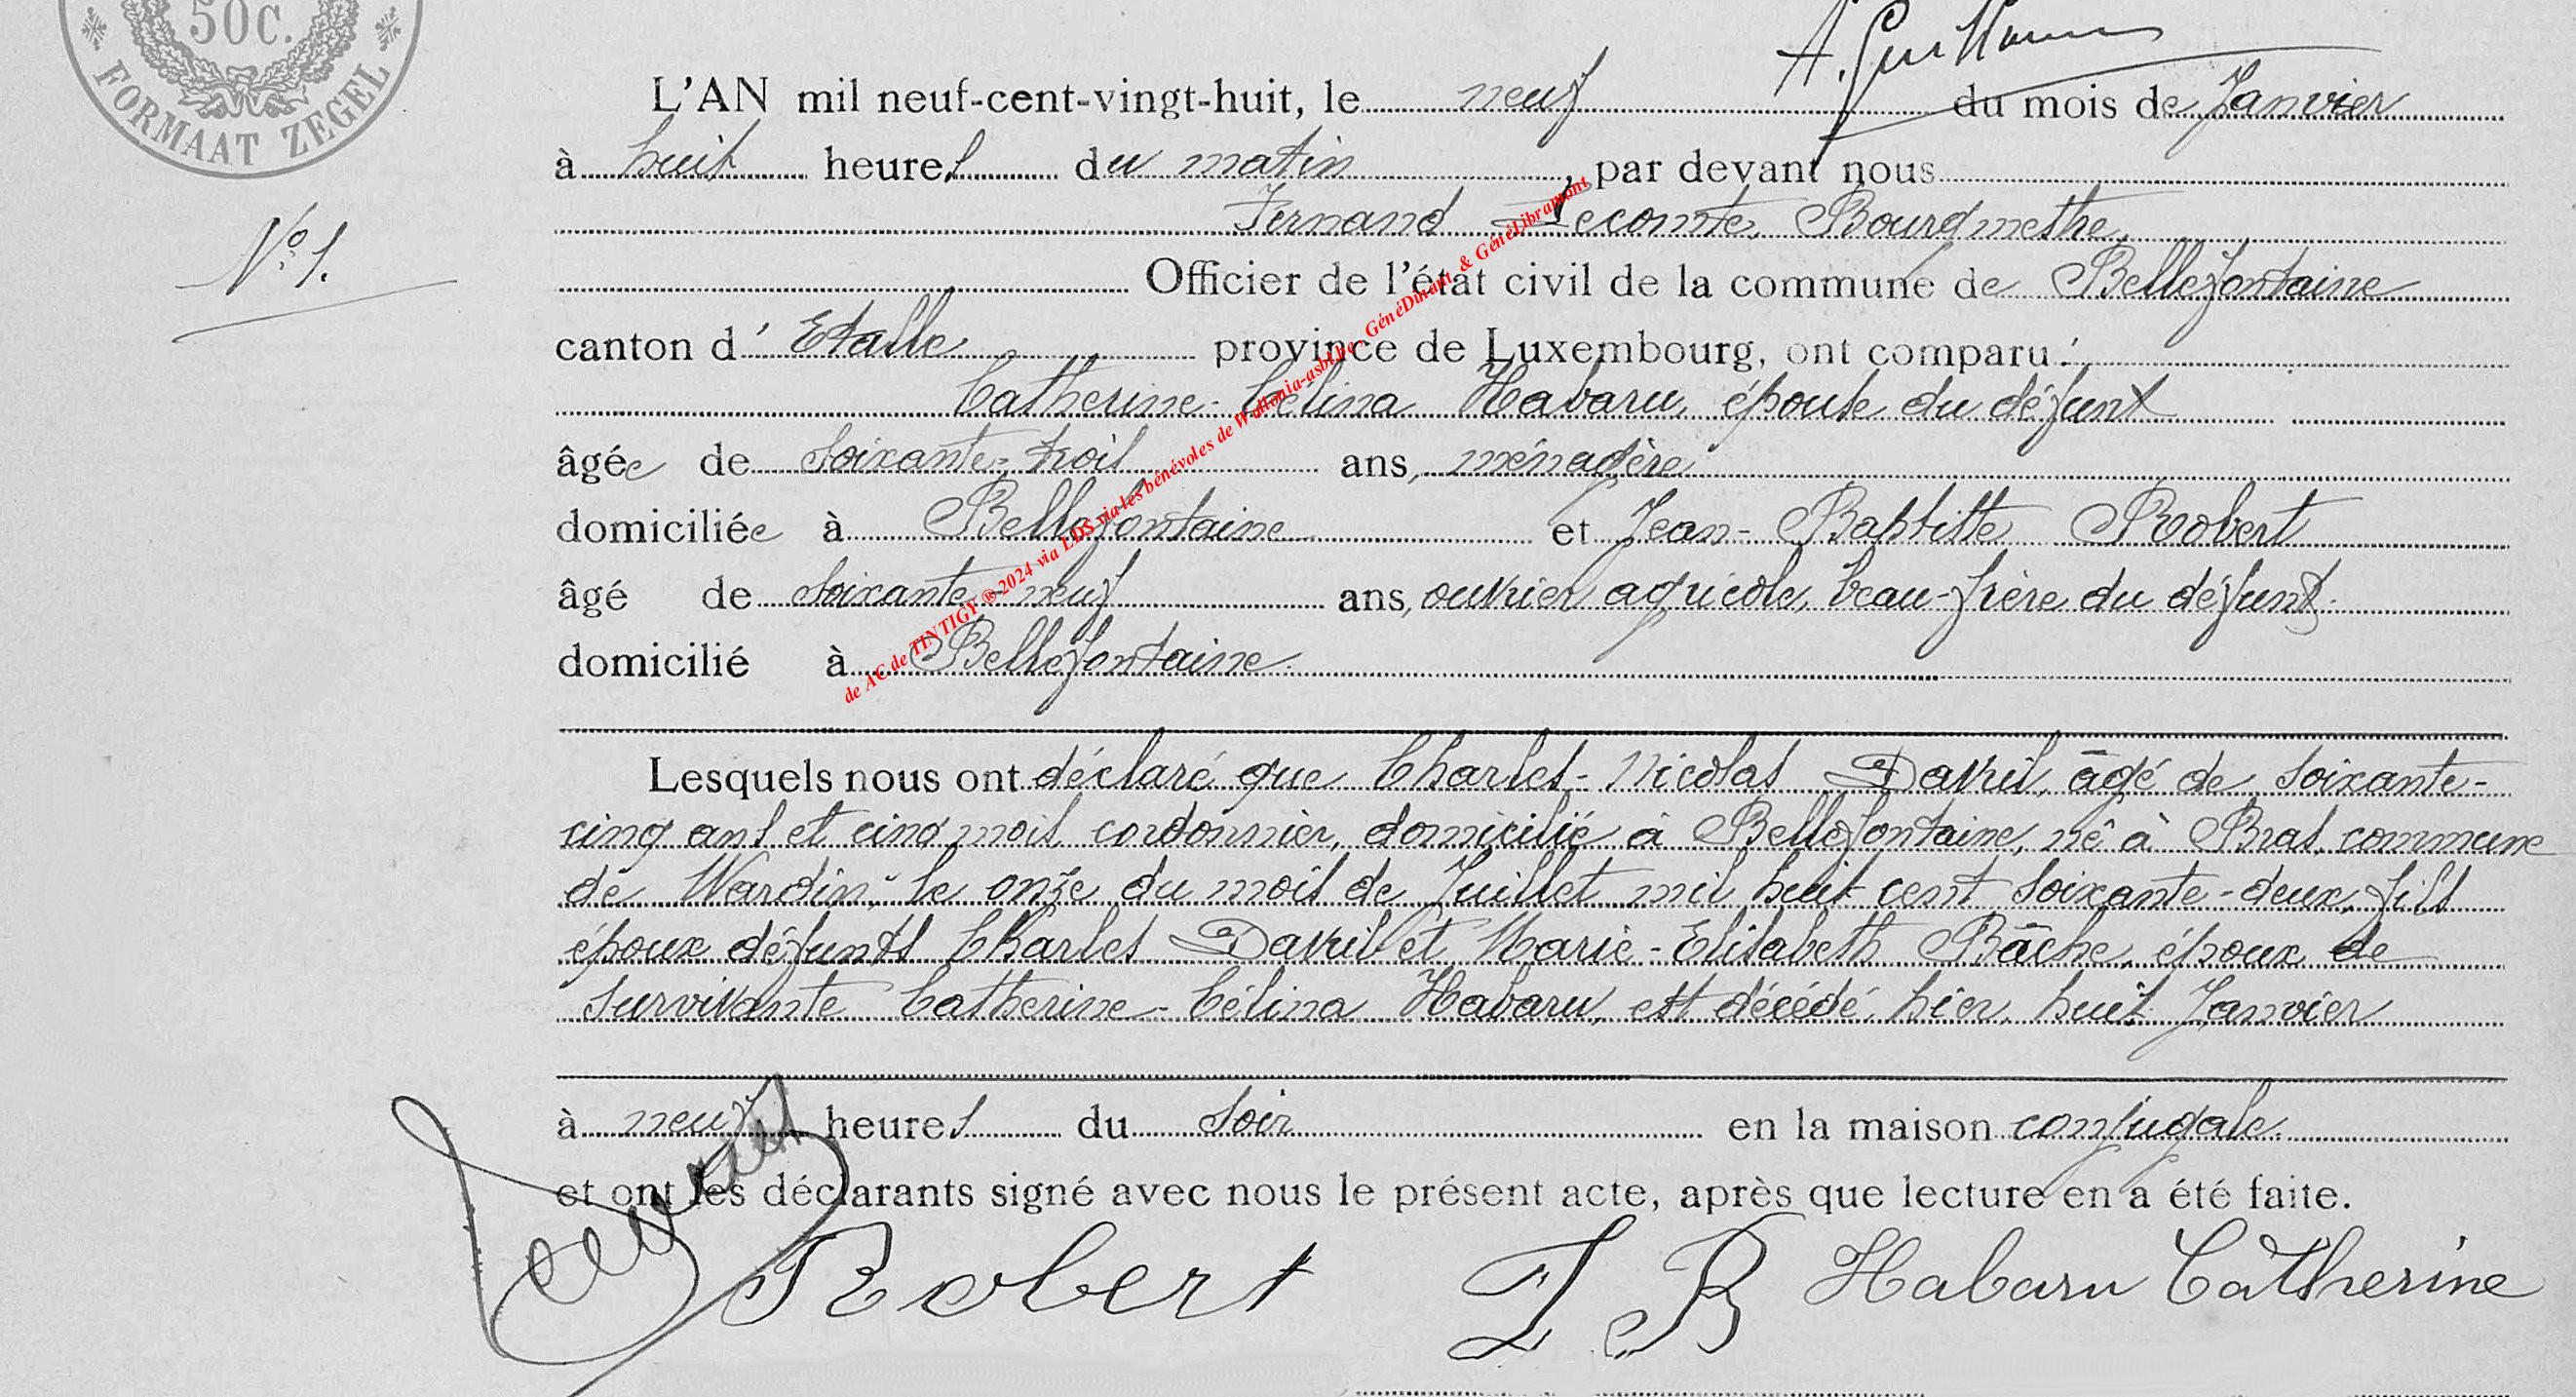 50C.
FORMAAT ZEGEL
A. Guillaume
L'AN mil neuf-cent-vingt-huit, le neuf du mois de Janvier
à huit heures du matin, par devant nous
Fernand Lecomte, Bourgmestre,
N° 1.
Officier de l'état civil de la commune de Bellefontaine
canton d' Etalle province de Luxembourg, ont comparu :
Catherine-Célina Habaru, épouse du défunt
âgée de soixante-trois ans, ménagère
domiciliée à Bellefontaine et Jean-Baptiste Robert
âgé de soixante-neuf ans, ouvrier agricole, beau-frère du défunt
domicilié à Bellefontaine.
de AC de TINTIGY ® 2024 via LDS via les bénévoles de Wallonia-asbl.be - GénéDinant & GénéLibramont
Lesquels nous ont déclaré que Charles-Nicolas Davril, âgé de soixante-
cinq ans et cinq mois, cordonnier, domicilié à Bellefontaine, né à Bras, commune
de Wardin, le onze du mois de Juillet mil huit cent soixante-deux, fils
époux défunts Charles Davril et Marie-Elisabeth Bâche, époux de
survivante Catherine-Célina Habaru, est décédé, hier, huit Janvier
à neuf heures du soir en la maison conjugale.
et ont les déclarants signé avec nous le présent acte, après que lecture en a été faite.
Robert J B Habaru Catherine